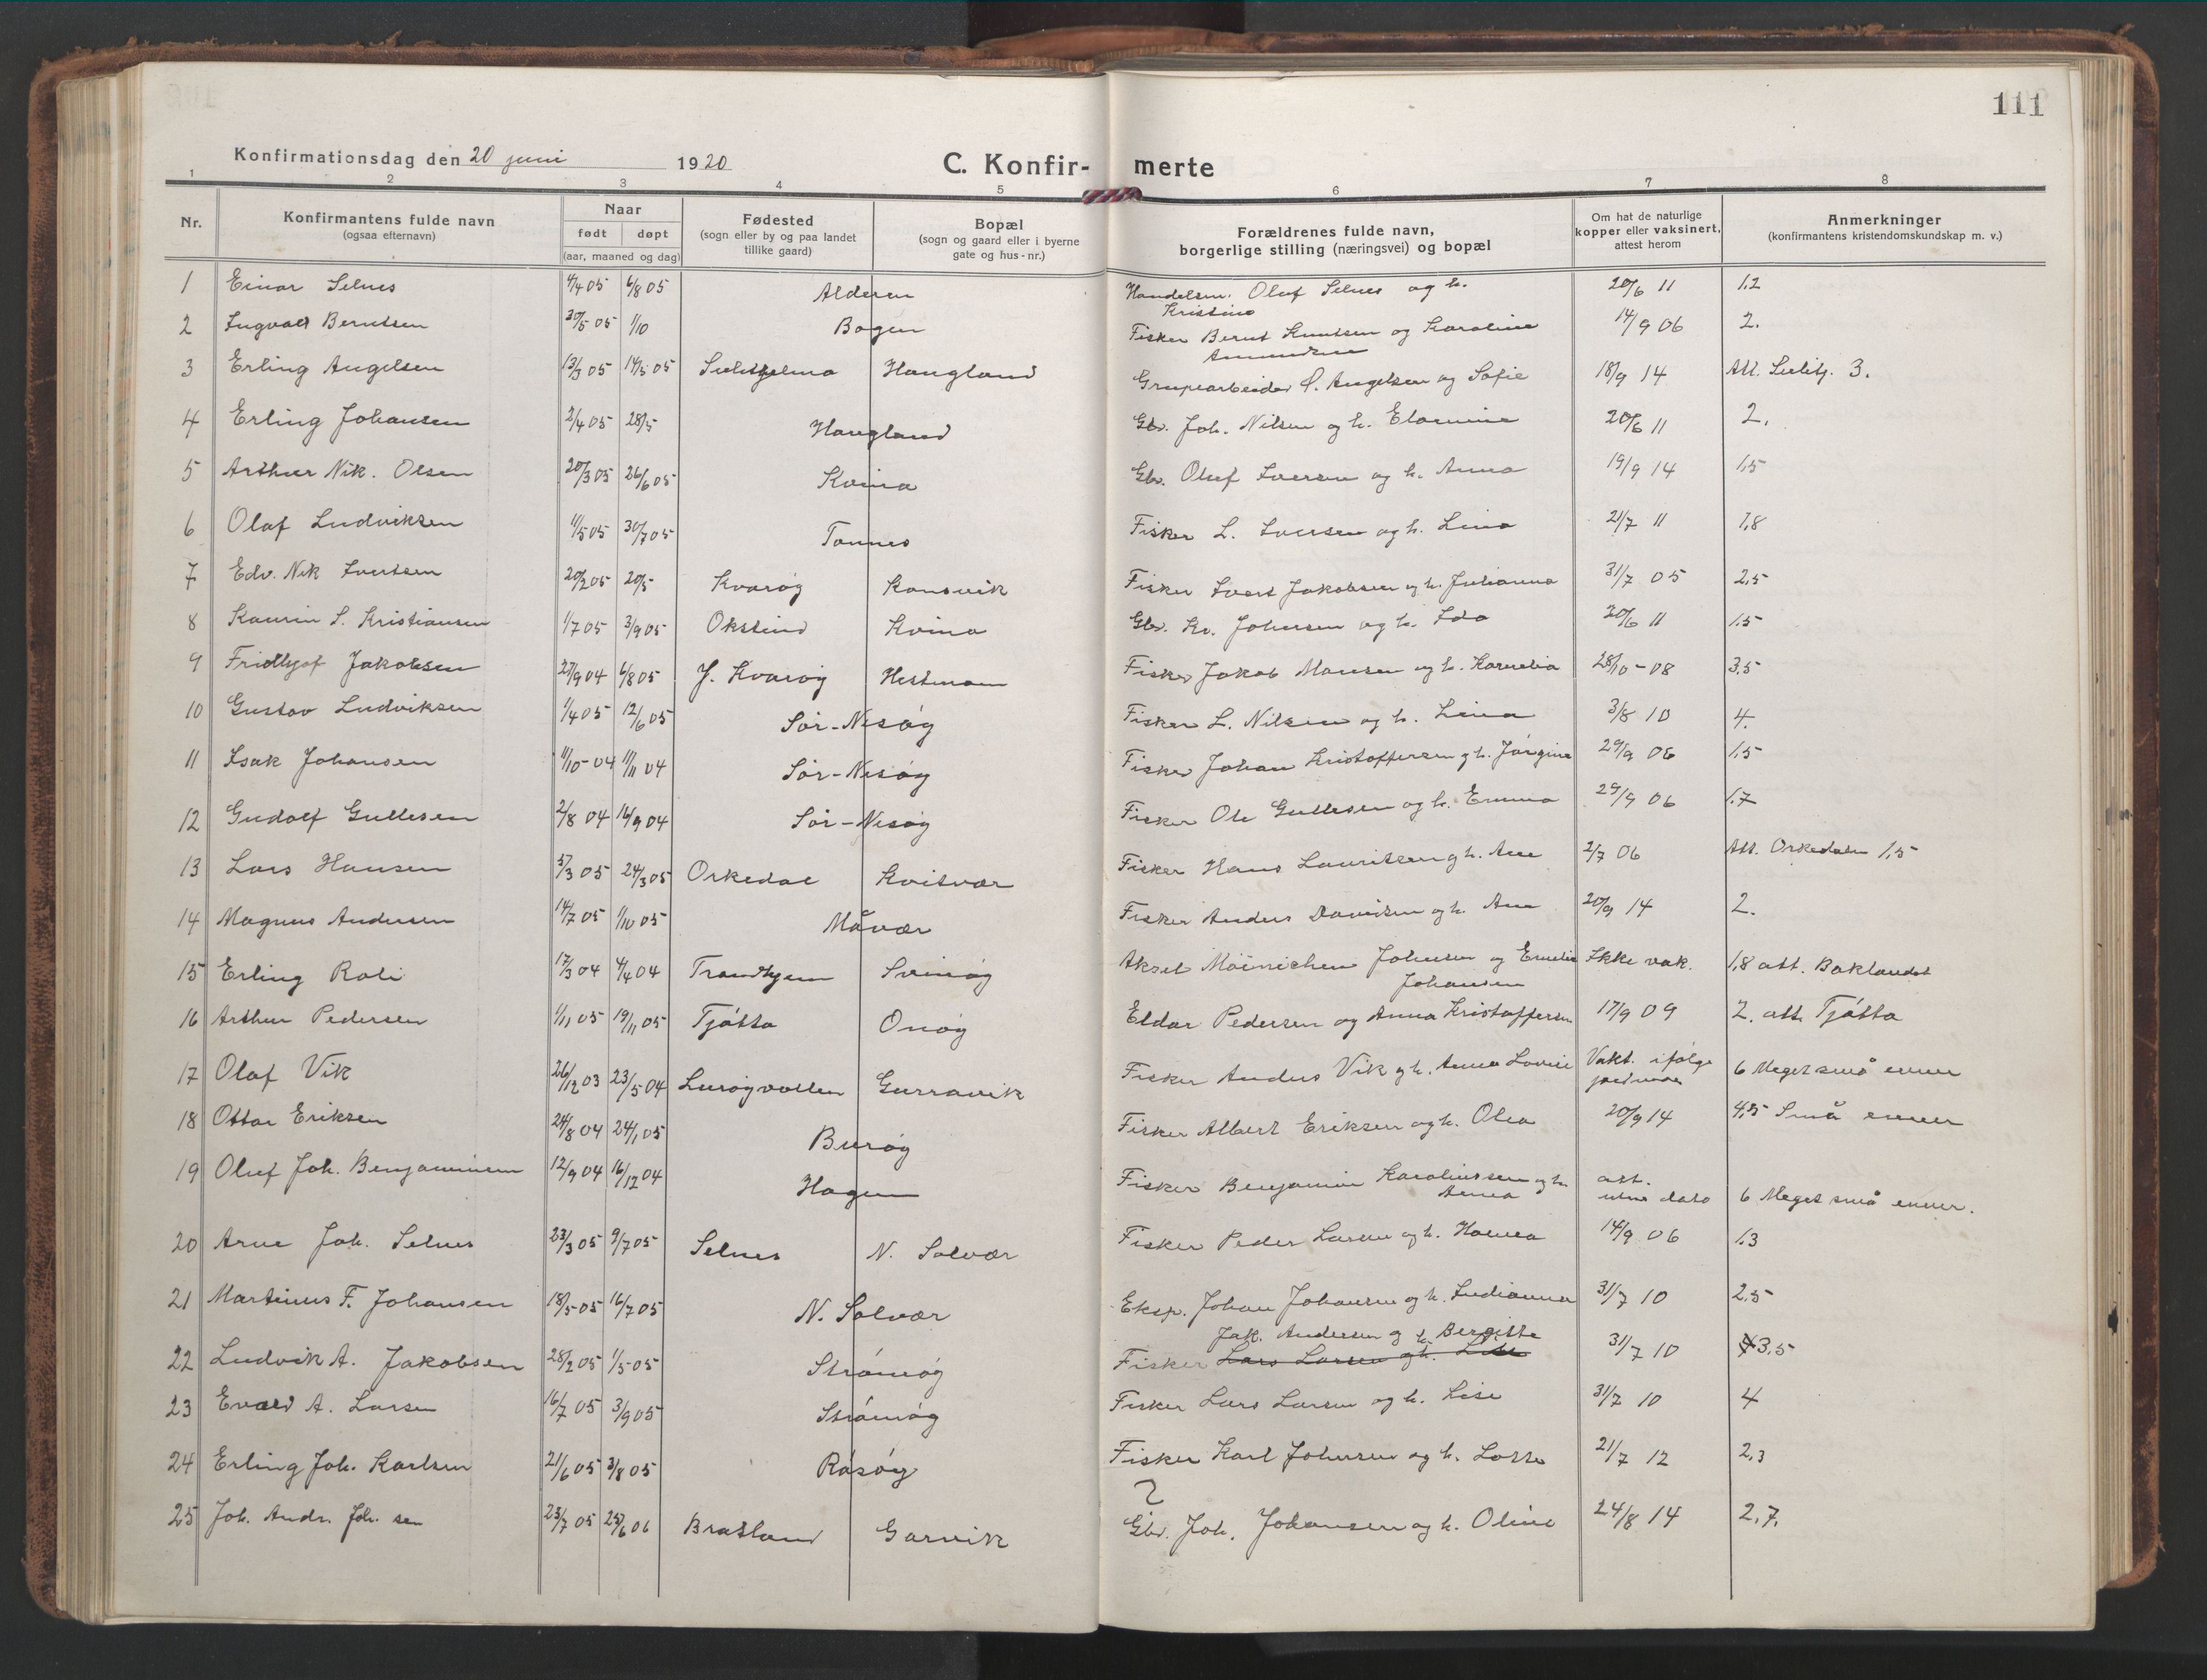 111
Konfirmationsdag den 20 juni 1920
C. Konfir- merte
1 2 3 4 5 6 7 8
Nr.
Konfirmantens fulde navn
(ogsaa efternavn)
Naar
født døpt
(aar, maaned og dag)
Fødested
(sogn eller by og paa landet
tillike gaard)
Bopæl
(sogn og gaard eller i byerne
gate og hus-nr.)
Forældrenes fulde navn,
borgerlige stilling (næringsvei) og bopæl
Om hat de naturlige
kopper eller vaksinert,
attest herom
Anmerkninger
(konfirmantens kristendomskundskap m. v.)
1 Einar Selnes 4/4 05 6/8 05 Alderen Handelsm. Oluf Selnes og h. 20/6 11 1.2
Kristine
2 Ingvald Berntsen 30/5 05 1/10 Bogen Fisker Bernt Knutsen og Karoline 14/9 06 2.
Amundsen
3 Erling Angelsen 13/3 05 14/5 05 Sulitjelma Haugland Grupearbeider O. Angelsen og Sofie 18/9 14 Att. Sulitj. 3.
4 Erling Johansen 2/4 05 28/5 Haugland Gbr. Joh. Nilsen og h. Elomine 20/6 11 2.
5 Arthur Nik. Olsen 20/3 05 26/6 05 Kvina Gbr. Oluf Iversen og h. Anna 19/9 14 1,5
6 Olaf Ludviksen 11/5 05 30/7 05 Tonnes Fisker L. Iversen og h. Lina 21/7 11 1,8
7 Edv. Nik Ivertsen 20/2 05 20/5 Kvarøy Konsvik Fisker Ivert Jakobsen og h. Julianna 31/7 05 2,5
8 Kaurin S. Kristiansen 1/7 05 3/9 05 Okstind Kvina Gbr. Kr. Johnsen og h. Ida 20/6 11 1.5
9 Fridtjof Jakobsen 27/9 04 6/8 05 J. Kvarøy Hestmann Fisker Jakob Monsen og h. Kornelia 28/10-08 3,5
10 Gustav Ludviksen 1/4 05 12/6 05 Sør-Nesøy Fisker L. Nilsen og h. Lina 3/8 10 4.
11 Isak Johansen 11/10-04 11/11 04 Sør-Nesøy Fisker Johan Kristoffersen og h. Jørgine 29/9 06 1,5
12 Gudolf Gullesen 2/8 04 16/9 04 Sør-Nesøy Fisker Ole Gullesen og h. Emma 29/9 06 1.7
13 Lars Hansen 5/3 05 24/3 05 Orkedal Kvitvær Fisker Hans Lauritsen og h. Ane 2/7 06 Att. Orkedalen 1,5
14 Magnus Andersen 14/7 05 1/10 05 Måvær Fisker Anders Davidsen og h. Ane 20/9 14 2.
15 Erling Roli 17/3 04 4/4 04 Trondhjem Svinøy Aksel Moinichen Johnsen og Emelie Ikke vak. 1,8 att. Baklandet
Johansen
16 Arthur Pedersen 1/11 05 19/11 05 Tjøtta Onøy Eldar Pedersen og Anna Kristoffersen 17/9 09 2. att. Tjøtta
17 Olaf Vik 26/12 03 23/5 04 Lurøyvollen Gurravik Fisker Anders Vik og h. Anna Lovise Vakt. ifølge 6 Meget små evner
18 Ottar Eriksen 24/8 04 24/1 05 Burøy Fisker Albert Eriksen og h. Olea 20/9 14 4,5 Små evner
19 Oluf Joh. Benjaminsen 12/9 04 16/12 04 Hagen Fisker Benjamin Karolinssen og h. att.
Anna uten dato 6 Meget små evner.
20 Arne Joh. Selnes 23/3 05 9/7 05 Selnes N. Solvær Fisker Peder Larsen og h. Hanna 14/9 06 1.3
21 Martinus F. Johansen 18/5-05 16/7 05 N. Solvær Eksp. Johan Johansen og h. Indianna 31/7 10 2.5
Jak. Andersen og h. Bergitte
22 Ludvik A. Jakobsen 28/2 05 1/5-05 Strømøy Fisker Lars Larsen og h. Lise 31/7 10 3.5
23 Evald A. Larsen 16/7 05 3/9 05 Strømøy Fisker Lars Larsen og h. Lise 31/7 10 4
24 Erling Joh. Karlsen 21/6 05 3/8 05 Råsøy Fisker Karl Johnsen og h. Lotte 21/7 12 2,3
25 Joh. Andr. Joh. sen 23/7 05 25/6 06 Bratland Garvik Gbr. Joh. Johansen og h. Oline 24/8 14 2,7.